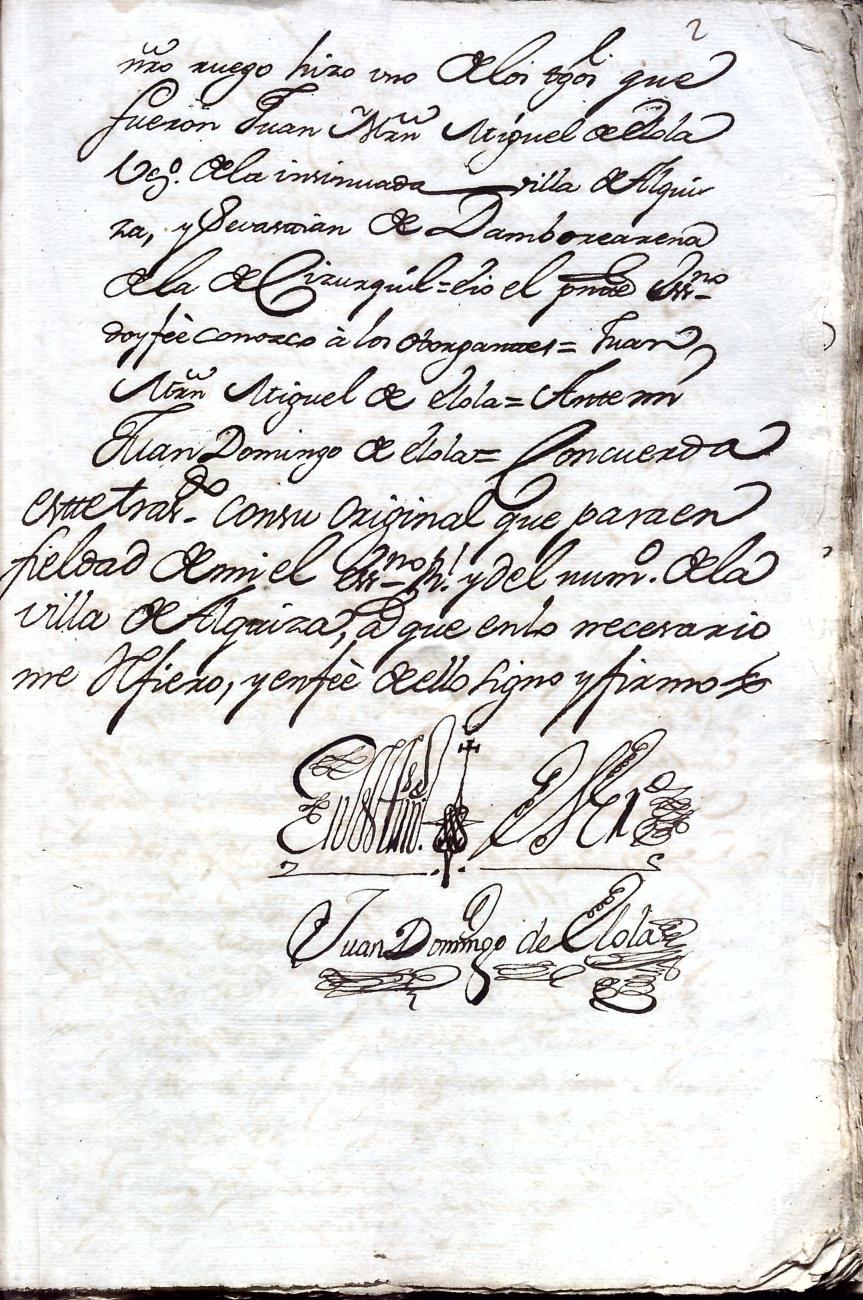 2
nr̃o ruego hizo vno de los tgos que
fueron Juan Mrñ Miguel de elola
Vº. de la insinuada villa de Alqui
za, y Sevastian de Damborearena
de la de Cizurquil = eio el pnte Essno
doy feè conozco à los otorgantes = Juan
Mtrñ Miguel de elola = Ante mi
Juan Domingo de elola = Concuerda
estte trasdo con su original que para en
fieldad de mi el essno Rl. y del numº. de la
villa de Alquiza, a que en lo necesario
me rrefiero, y en feè de ello signo y firmo
En testimº. de Verdº
Juan Domingo de Elola